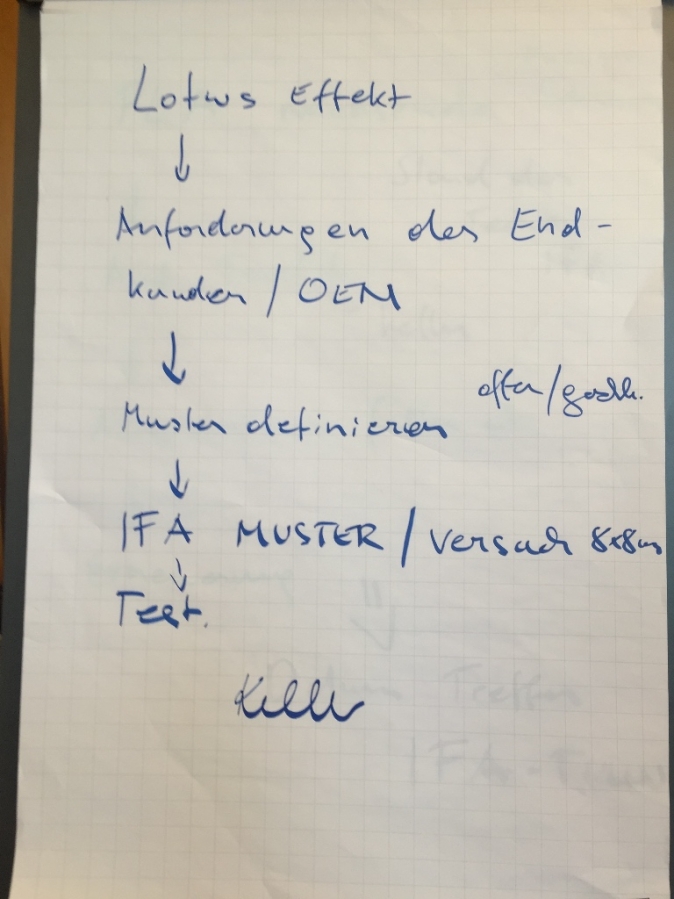 Lotus Effekt
↓
Anforderungen des End-
kunden / OEM
↓
offen/geschl.
Muster definieren
↓
IFA MUSTER / Versuch 8x8cm
↓
Test.